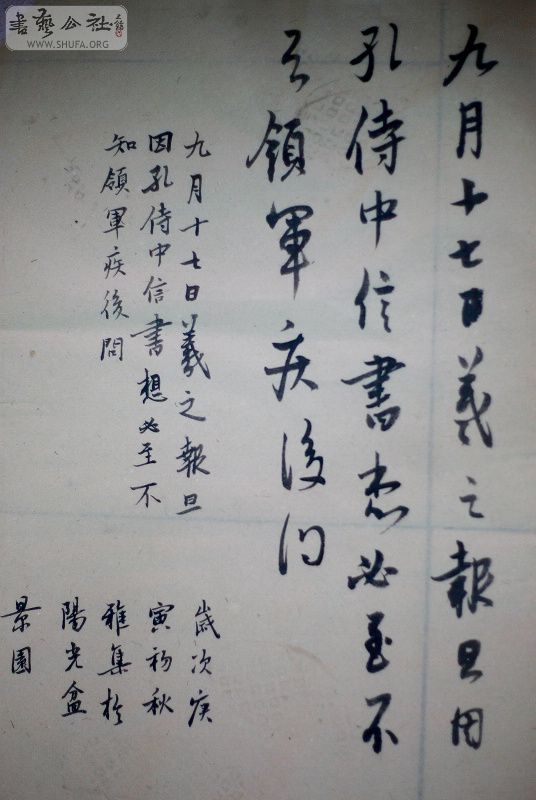 書藝公社
www.SHUFA.ORG
九月十七日羲之報旦因
孔侍中信書想必至不
知領軍疾後問
九月十七日羲之報旦
因孔侍中信書想必至不
知領軍疾後問
歲次庚
寅初秋
雅集於
陽光盆
景園